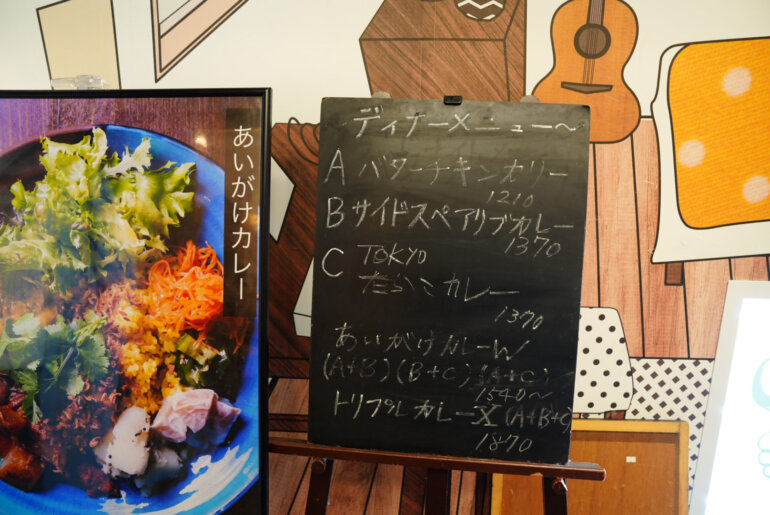 あいがけカレー
ディナーメニュー〜
A バターチキンカリー
1210
B サイドスペアリブカレー
1370
C TOKYO
たらこカレー
1370
あいがけカレーW
(A+B) (B+C) (A+C)
1540〜
トリプルカレーX (A+B+C)
1870